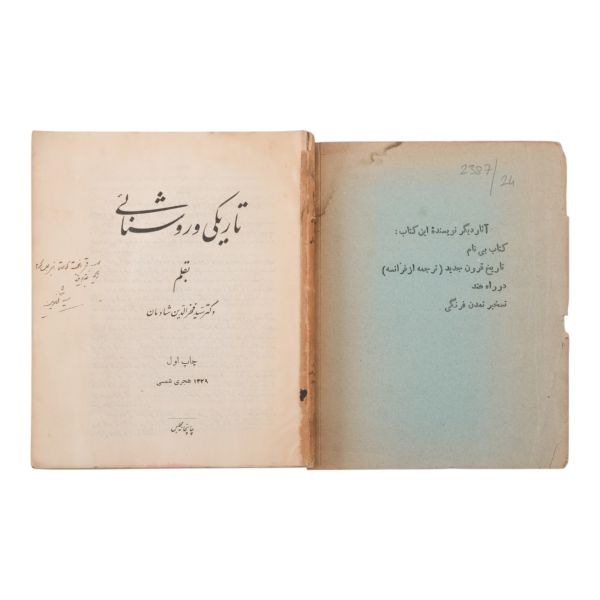 تاریکی و روشنائی
بقلم
دکتر سید فخرالدین شادمان
چاپ اول
۱۳۲۹ هجری شمسی
چاپخانه مجلس
2387/24
آثار دیگر نویسندهٔ این کتاب :
کتاب بی نام
تاریخ قرون جدید ( ترجمه از فرانسه )
در راه هند
تسخیر تمدن فرنگی